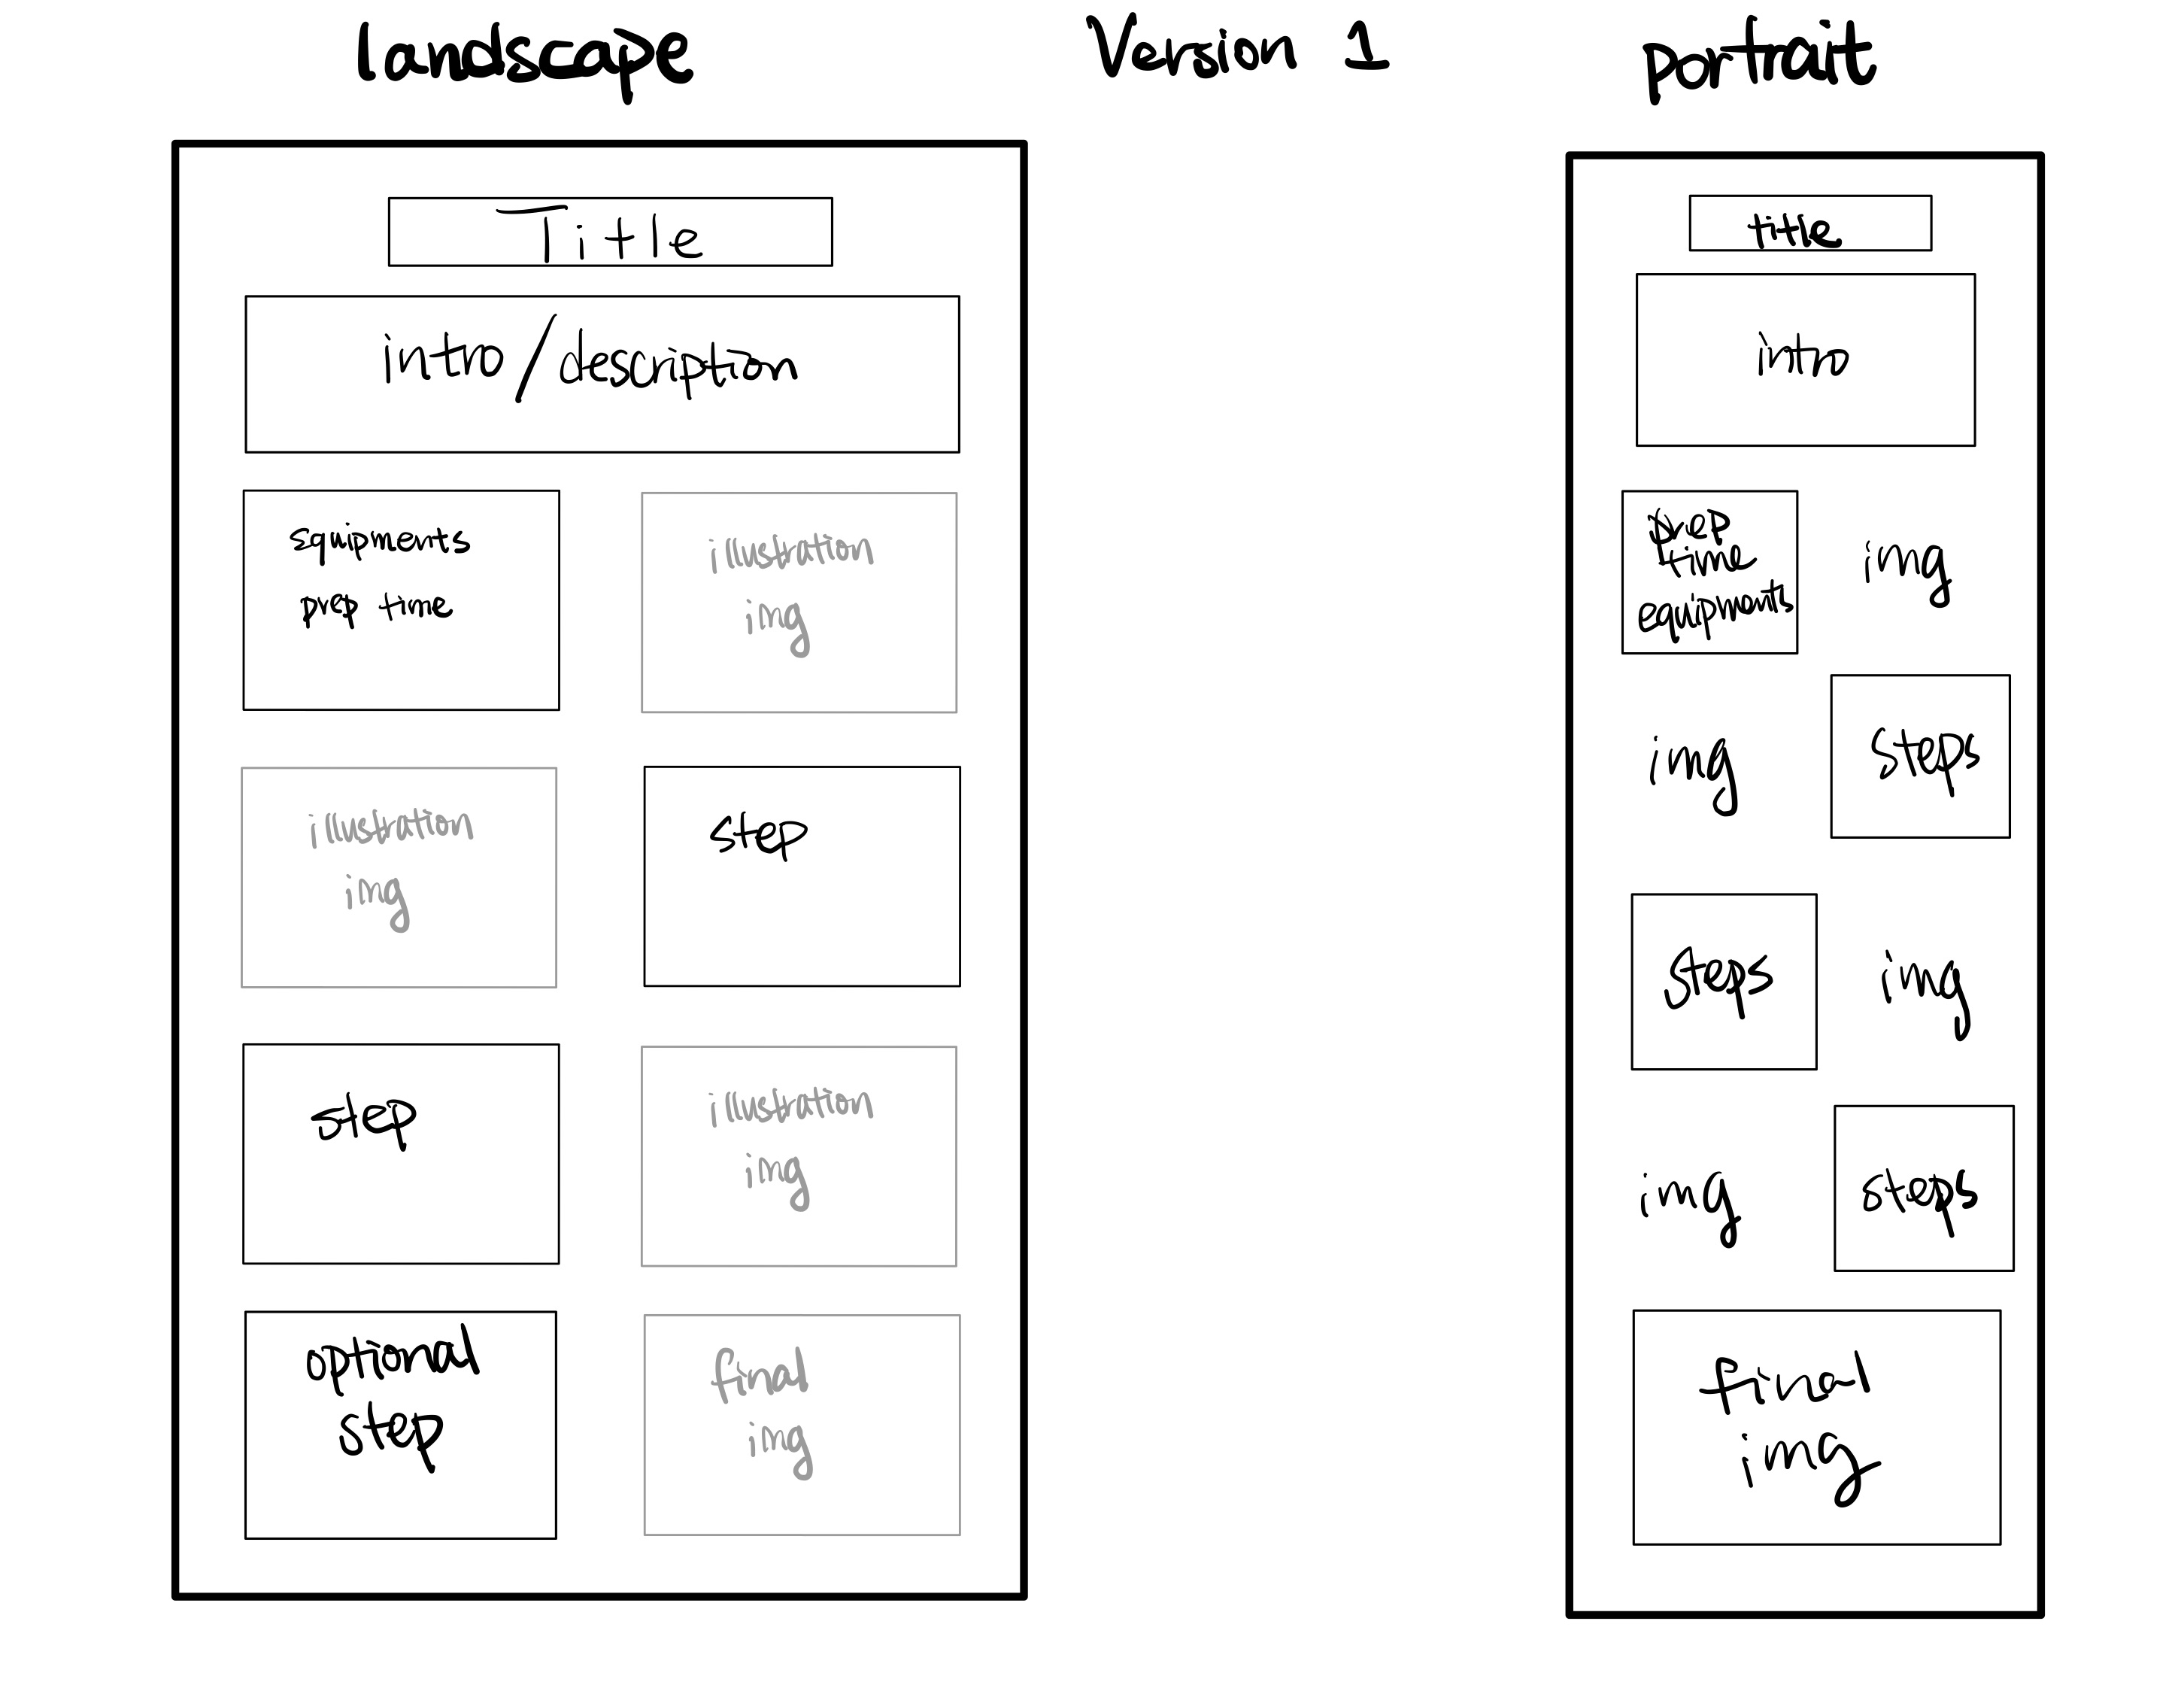 landscape
Version 1
portrait
Title
intro/description
equipments
prep time
illustration
img
illustration
img
step
step
illustration
img
optional
step
final
img
title
intro
prep
time
equipments
img
img
steps
steps
img
img
steps
final
img